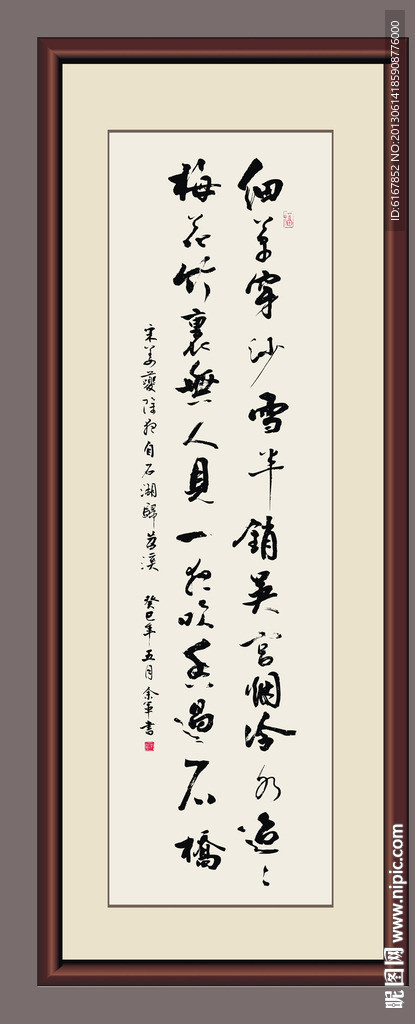 細草穿沙雪半銷吳宮煙冷水迢〻
梅花竹裏無人見一夜吹香過石橋
宋姜夔除夜自石湖歸苕溪 癸巳年五月余軍書
ID:6167852 NO:20130614185908776000
昵图网 www.nipic.com